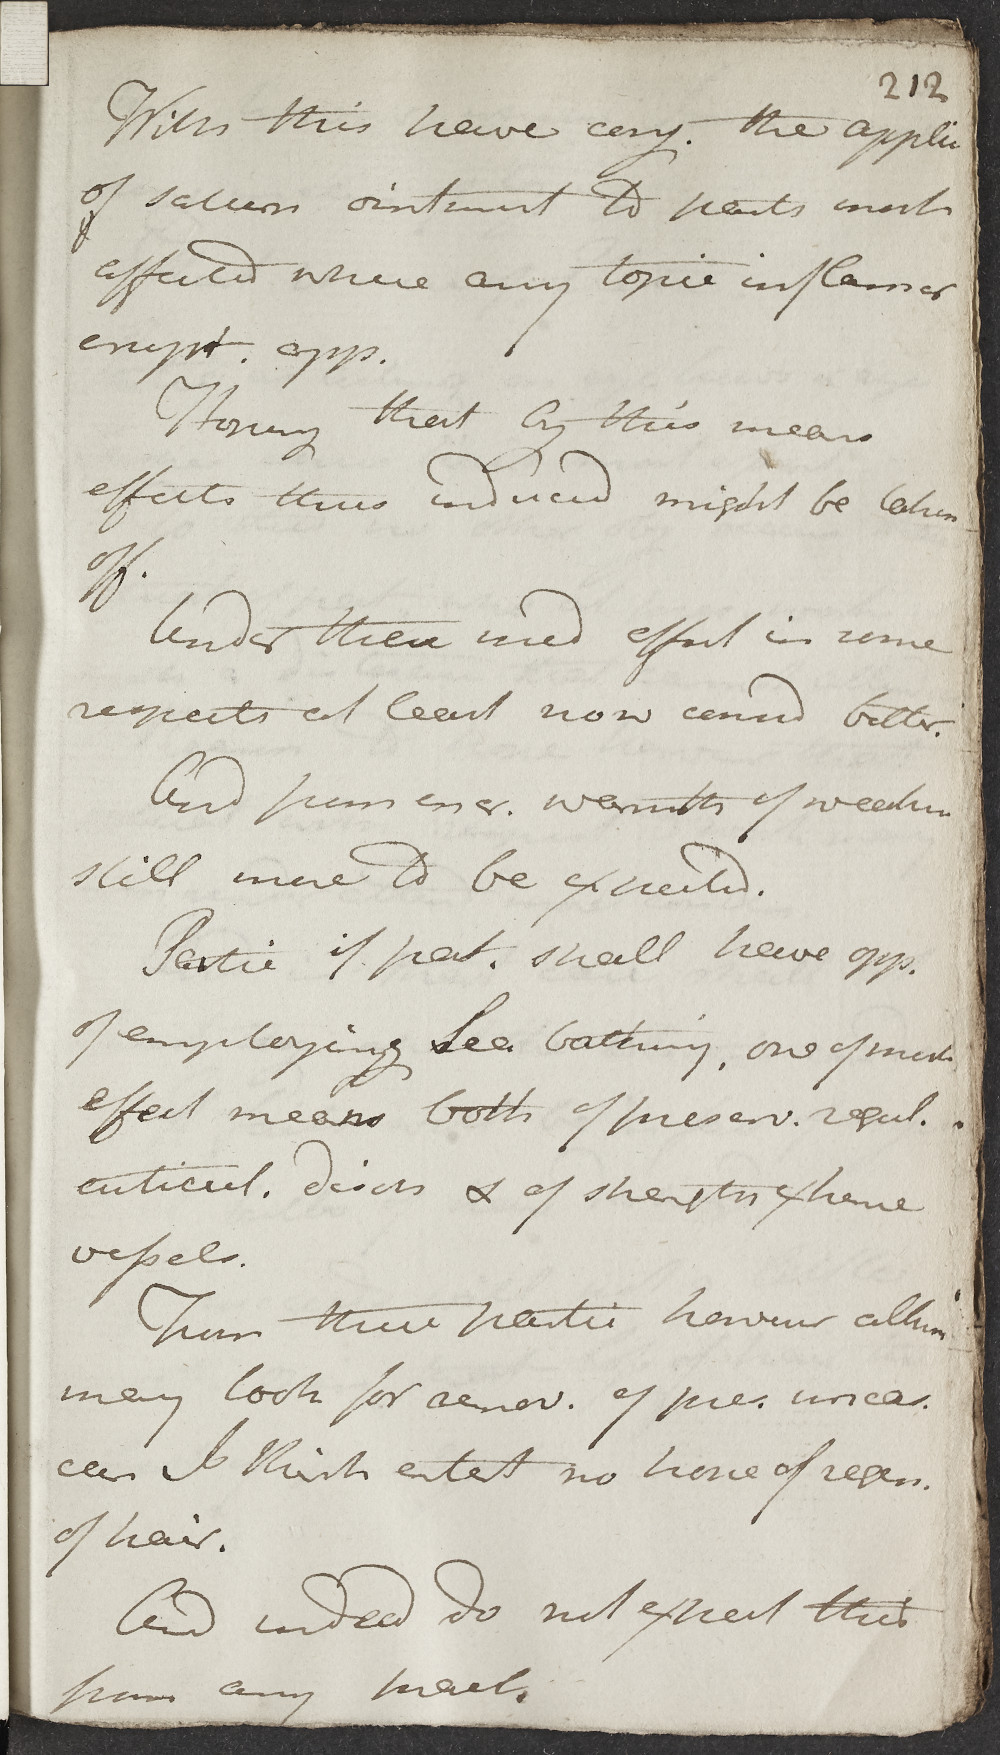 212
With this have conj. the applic
of saturn ointment to parts most
affected where any topic inflammar
erupt. app.
Hoping that by this means
effects thus induced might be taken
off.
Under these med effect in some
respects at least now considd better.
And from encr. warmth of weather
still more to be expected.
Partic if pat. shall have opp.
of employing Sea bathing, one of most
effect means both of preserv. regul.
cuticul. disch & of strength exhaust
vessels.
From these partic however altho
may look for remov. of pres. uneas.
can I think entert no hope of regen.
of hair.
And indeed do not expect this
from any pract.